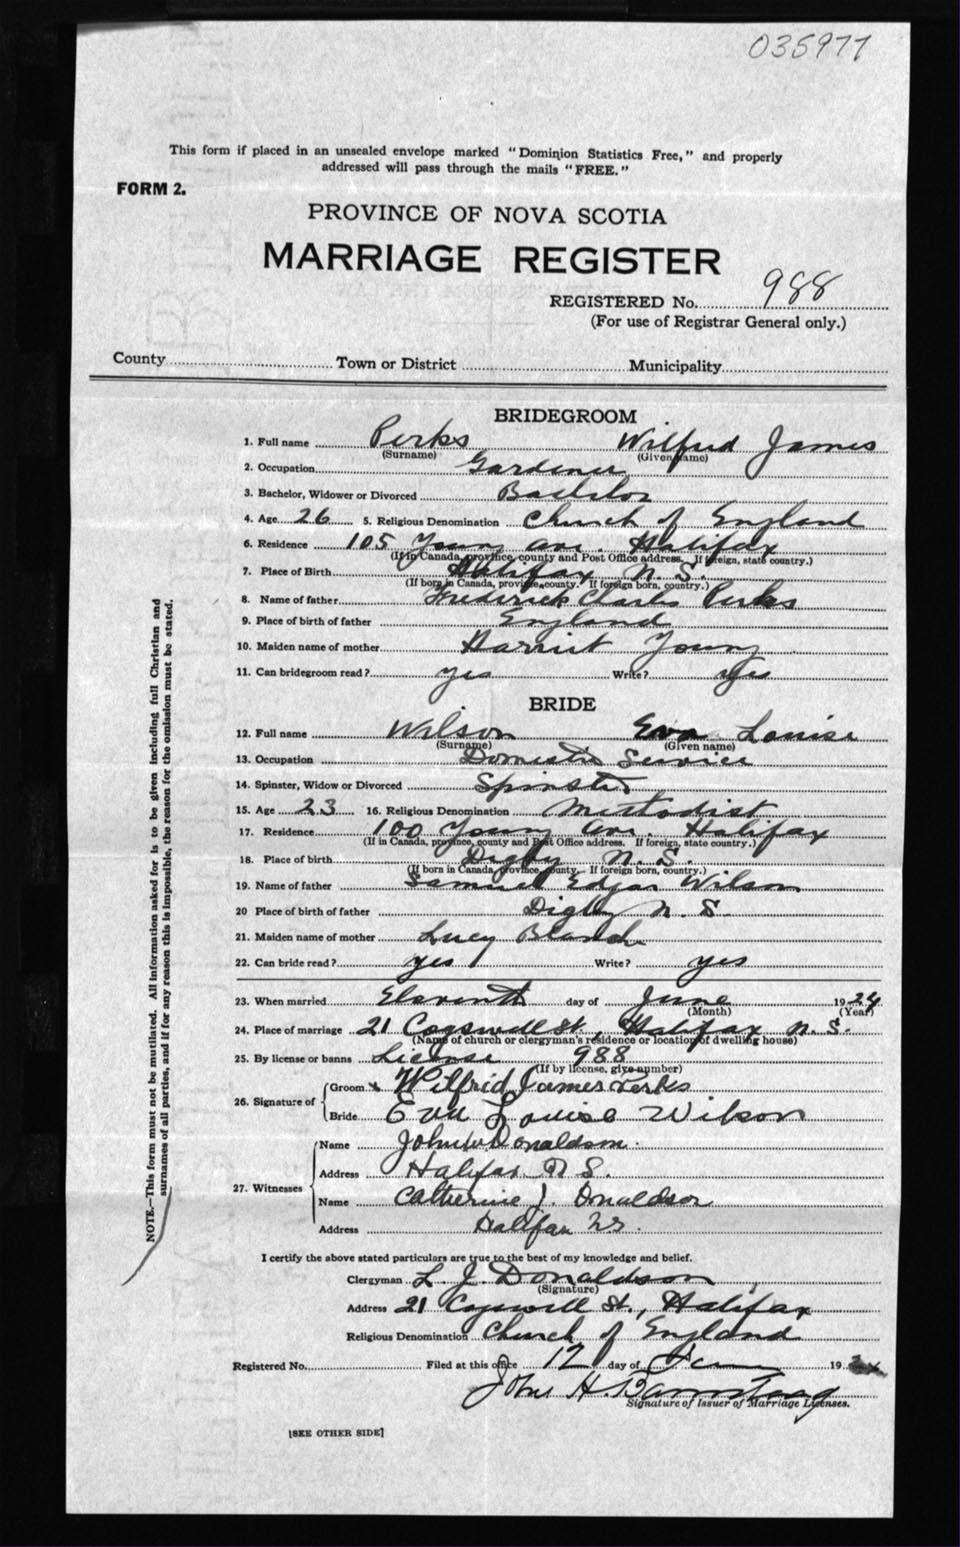 035977
This form if placed in an unsealed envelope marked "Dominion Statistics Free," and properly
addressed will pass through the mails "FREE."
FORM 2.
PROVINCE OF NOVA SCOTIA
MARRIAGE REGISTER
REGISTERED No. 988
(For use of Registrar General only.)
County Town or District Municipality
BRIDEGROOM
1. Full name Perks Wilfred James
(Surname) (Given name)
2. Occupation Gardener
3. Bachelor, Widower or Divorced Bachelor
4. Age 26 5. Religious Denomination Church of England
6. Residence 105 Young Ave. Halifax
(If in Canada, province, county and Post Office address. If foreign, state country.)
7. Place of Birth Halifax N. S.
(If born in Canada, province, county. If foreign born, country.)
8. Name of father Frederick Charles Perks
9. Place of birth of father England
10. Maiden name of mother Harriet Young
11. Can bridegroom read? yes Write? Yes
BRIDE
12. Full name Wilson Eva Louise
(Surname) (Given name)
13. Occupation Domestic Service
14. Spinster, Widow or Divorced Spinster
15. Age 23 16. Religious Denomination Methodist
17. Residence 100 Young Ave. Halifax
(If in Canada, province, county and Post Office address. If foreign, state country.)
18. Place of birth Digby N. S.
(If born in Canada, province, county. If foreign born, country.)
19. Name of father Samuel Edgar Wilson
20 Place of birth of father Digby N. S.
21. Maiden name of mother Lucy
22. Can bride read? yes Write? yes
23. When married Eleventh day of June 1924
(Month) (Year)
24. Place of marriage 21 Cogswell St., Halifax N. S.
(Name of church or clergyman's residence or location of dwelling house)
25. By license or banns License 988
(If by license, give number)
26. Signature of
Groom x Wilfrid James Perks
Bride Eva Louise Wilson
27. Witnesses
Name John W Donaldson.
Address Halifax N S.
Name Catherine J. Donaldson
Address Halifax NS.
I certify the above stated particulars are true to the best of my knowledge and belief.
Clergyman L. J. Donaldson
(Signature)
Address 21 Cogswell St., Halifax
Religious Denomination Church of England
Registered No. Filed at this office 12 day of June 19
John H. Barnstead
Signature of Issuer of Marriage Licenses.
[SEE OTHER SIDE]
NOTE.—This form must not be mutilated. All information asked for is to be given including full Christian and
surnames of all parties, and if for any reason this is impossible, the reason for the omission must be stated.